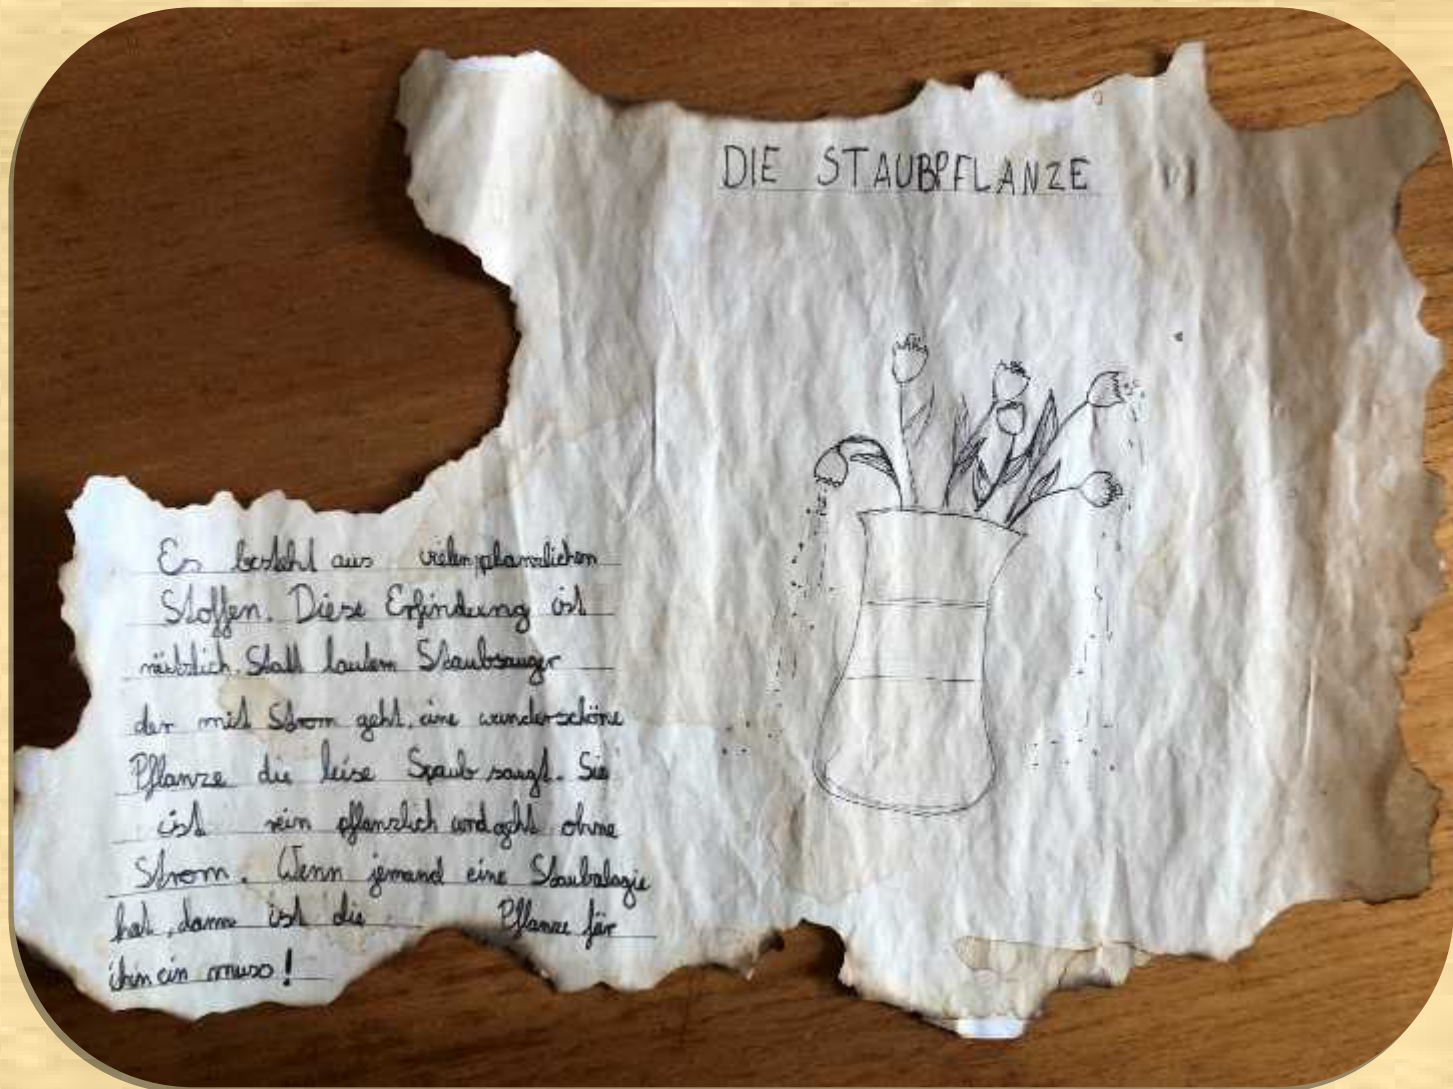 DIE STAUBPFLANZE
Es besteht aus vielen pflanzlichen
Stoffen. Diese Erfindung ist
nützlich. Statt lautem Staubsauger
der mit Strom geht, eine wunderschöne
Pflanze die leise Spaub saugt. Sie
ist rein pflanzlich und geht ohne
Strom. Wenn jemand eine Staubalagie
hat, dann ist die Pflanze für
ihn ein muss!